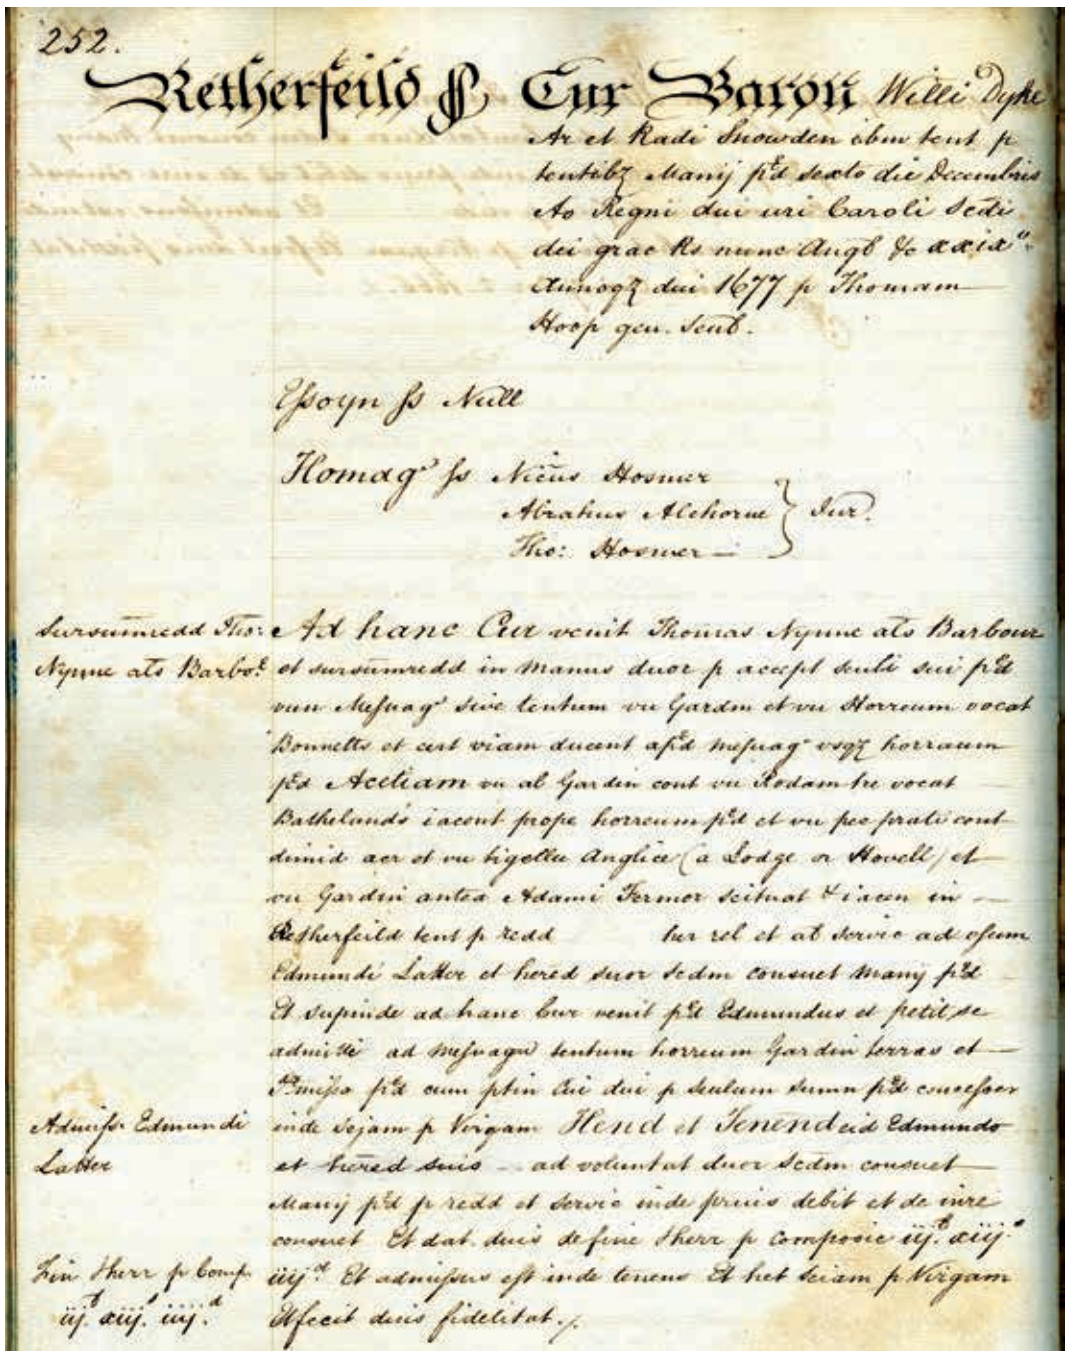 252.
Retherfeild ss Cur Baron Willi Dyke
Ar et Radi Snowden ibm tent p
tentibz Manij pd sexto die Decembris
Ao Regni dni nri Caroli Scdi
dei grac Rs nunc Angl &c xxix°
Annoqz dni 1677 p Thomam
Hoop gen. Senl.
Essoyn ss Null
Homag ss Nicus Hosmer
Abrahus Alchorne } Jur.
Tho: Hosmer
Sursumredd Tho:
Nynne als Barbor
Ad hanc Cur venit Thomas Nynne als Barbour
et sursumredd in manus dnor p accept senli sui pd
unn Mesuag sive tentum vn Gardin et vn Horreum vocat
Bonnetts et cert viam ducent apd mesuag vsqz horraum
pd Acetiam vn al Gardin cont vn Rodam tre vocat
Bathelands iacent prope horreum pd et vn pec prati cont
dimid acr et vn tigellu Anglice (a Lodge or Hovell) et
vn Gardin antea Adami Fermor scituat & iacen in
Retherfeild tent p redd her rel et al servic ad opum
Edmundi Latter et hered suor scdm consuet Manij pd
Et supinde ad hanc Cur venit pd Edmundus et petit se
admitti ad mesuagu tentum horreum Gardin terras et
Pmissa pd cum ptin Cui dni p senlum suum pd concesser
Admiss Edmundi
Latter
inde sejam p Virgam Hend et Tenend eid Edmundo
et hered suis ad voluntat dnor scdm consuet
Manij pd p redd et servic inde prius debit et de iure
consuet Et dat dnis de fine & herr p composic iij.l xiij.s
Fin & herr p Comp.
iij.l xiij.s iiij.d
iiij.d Et admissus est inde tenens Et het seiam p Virgam
Et fecit dnis fidelitat.